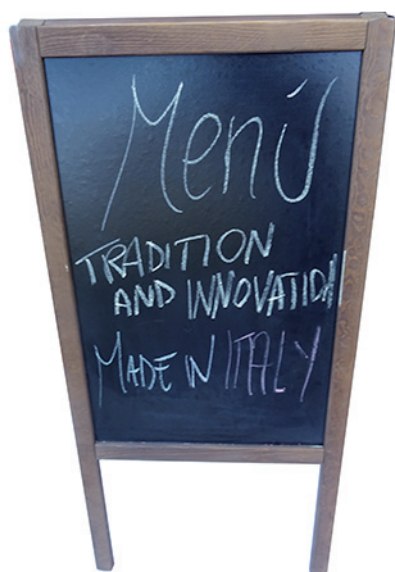 Menú
TRADITION
AND INNOVATION
MADE IN ITALY